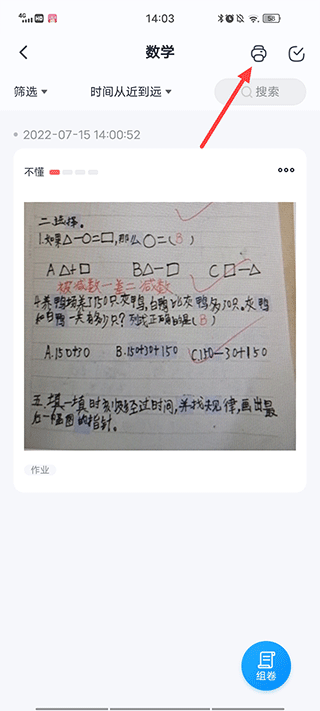 4G 14:03 58
数学
筛选 时间从近到远 搜索
2022-07-15 14:00:52
不懂
二.选择。
1.如果△-○=□,那么○=(B)
A △+□ B△-□ C□-△
被减数-差=减数
4.养鸭场养了150只灰鸭,白鸭比灰鸭多30只。灰鸭
和白鸭一共有多少只?列式正确的是(B)
A.150+30 B.150+30+150 C.150-30+150
五.填一填时刻或经过时间,并找规律,画出最
后一幅图的指针。
作业
组卷